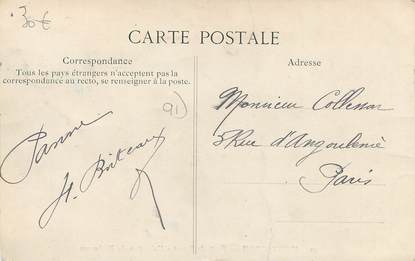 30€
CARTE POSTALE
Correspondance
Tous les pays étrangers n'acceptent pas la
correspondance au recto, se renseigner à la poste.
Adresse
91)
Monsieur
5 Rue d'Angoulême
Paris